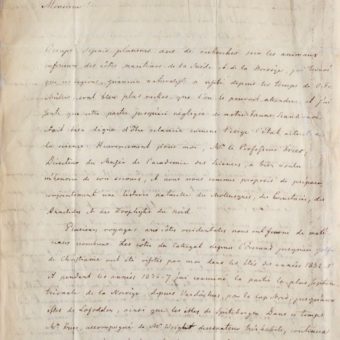 Monsieur!
Occupé depuis plusieurs ans de recherches sur les animaux
inférieurs des côtes maritimes de la Suède et de la Norvège, j'ai trouvé
que ces régions, qu'aucun naturaliste a visité depuis les temps de O. Fr.
Müller, sont bien plus riches, que l'on ne pourrait attendre, et j'ai
senti que cette partie jusqu'ici négligée de notre Faune Scandinave
était très digne d'être éclaircie comme l'exige l'état actuel de
la science. Heureusement pour moi, Mr. le Professeur
Directeur du Musée de l'académie des sciences, a bien voulu
de son secours, et nous nous sommes proposés de préparer
conjointement une histoire naturelle des Mollusques, des Crustacés, des
Annelides et des Zoophytes du Nord.
Plusieurs voyages aux côtes occidentales nous ont fourni de maté-
riaux nombreux. Les côtes du Categat depuis jusqu'au golfe
de Christiania ont été visitées par moi dans les étés des années
Et pendant les années 1836-7 j'ai examiné la partie la plus septen-
trionale de la Norvège, depuis par le Cap Nord, jusqu'aux
îles de Lofodden, ainsi que les îles de Spitsbergen. Dans ce temps
Mr. accompagné de Mr. Wright, dessinateur très habile, continua